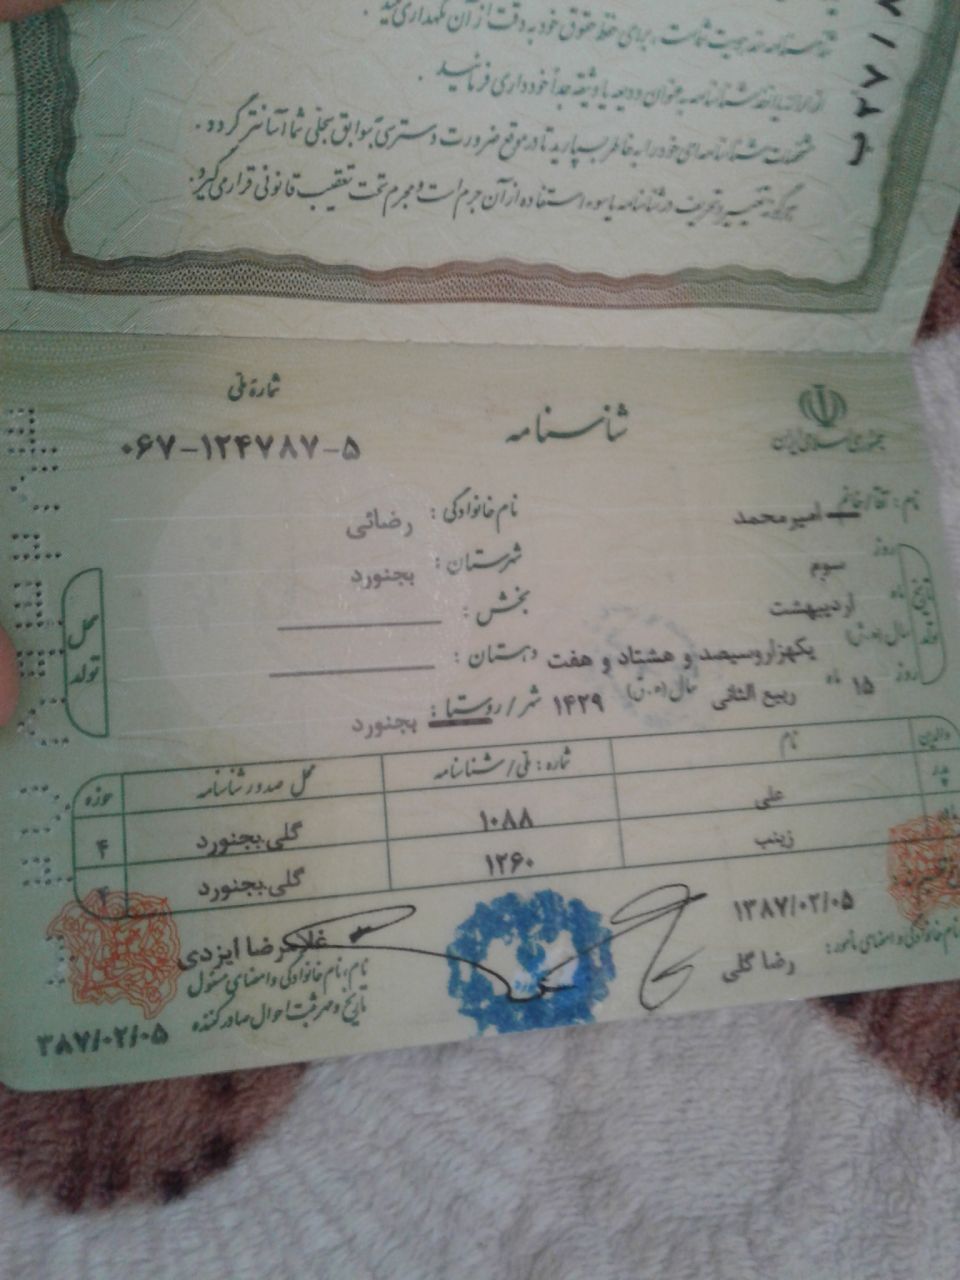 شناسنامه سند هویت شماست، برای حفظ حقوق خود به دقت از آن نگهداری کنید.
از ارائه یا اخذ شناسنامه به عنوان ودیعه یا وثیقه جداً خودداری فرمائید.
مشخصات شناسنامه‌ای خود را به خاطر بسپارید تا در موقع ضرورت دسترسی به سوابق سجلی شما آسانتر گردد.
هرگونه تغییر و تحریف در شناسنامه یا سوء استفاده از آن جرم است و مجرم تحت تعقیب قانونی قرار می‌گیرد.
ب ۲۷/
جمهوری اسلامی ایران
شناسنامه
شماره ملی
۰۶۷-۱۲۴۷۸۷-۵
نام: آقا/خانم امیرمحمد
نام خانوادگی: رضائی
تاریخ تولد
روز سوم
ماه اردیبهشت
سال (ه.ش) یکهزاروسیصد و هشتاد و هفت
روز ۱۵ ماه ربیع الثانی سال (ه.ق) ۱۴۲۹
محل تولد
شهرستان: بجنورد
بخش:
دهستان:
شهر/روستا: بجنورد
والدین نام شماره: ملی/شناسنامه محل صدور شناسنامه حوزه
پدر علی ۱۰۸۸ گلی‌بجنورد ۴
مادر زینب ۱۲۶۰ گلی‌بجنورد ۴
۱۳۸۷/۰۲/۰۵
نام خانوادگی و امضای مامور: رضا گلی
غلامرضا ایزدی
نام، نام خانوادگی و امضای مسئول
تاریخ و مهر ثبت احوال صادرکننده
۳۸۷/۰۲/۰۵